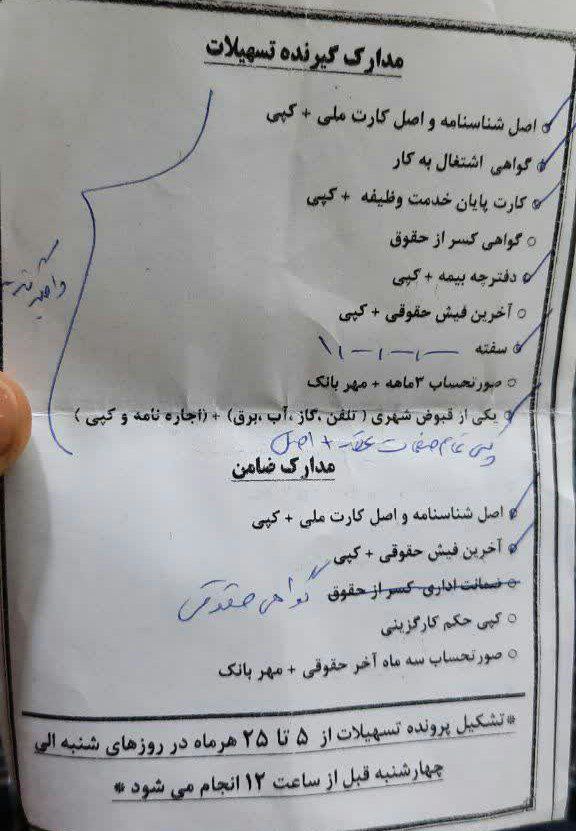 مدارک گیرنده تسهیلات
اصل شناسنامه و اصل کارت ملی + کپی
گواهی اشتغال به کار
کارت پایان خدمت وظیفه + کپی
گواهی کسر از حقوق
دفترچه بیمه + کپی
آخرین فیش حقوقی + کپی
سفته
صورتحساب ۳ماهه + مهر بانک
یکی از قبوض شهری ( تلفن ،گاز ،آب ،برق) + (اجاره نامه و کپی )
تمام صفحات + اصل
مدارک ضامن
اصل شناسنامه و اصل کارت ملی + کپی
آخرین فیش حقوقی + کپی
ضمانت اداری کسر از حقوق گواهی حقوقی
کپی حکم کارگزینی
صورتحساب سه ماه آخر حقوقی + مهر بانک
*تشکیل پرونده تسهیلات از ۵ تا ۲۵ هرماه در روزهای شنبه الی
چهارشنبه قبل از ساعت ۱۲ انجام می شود *